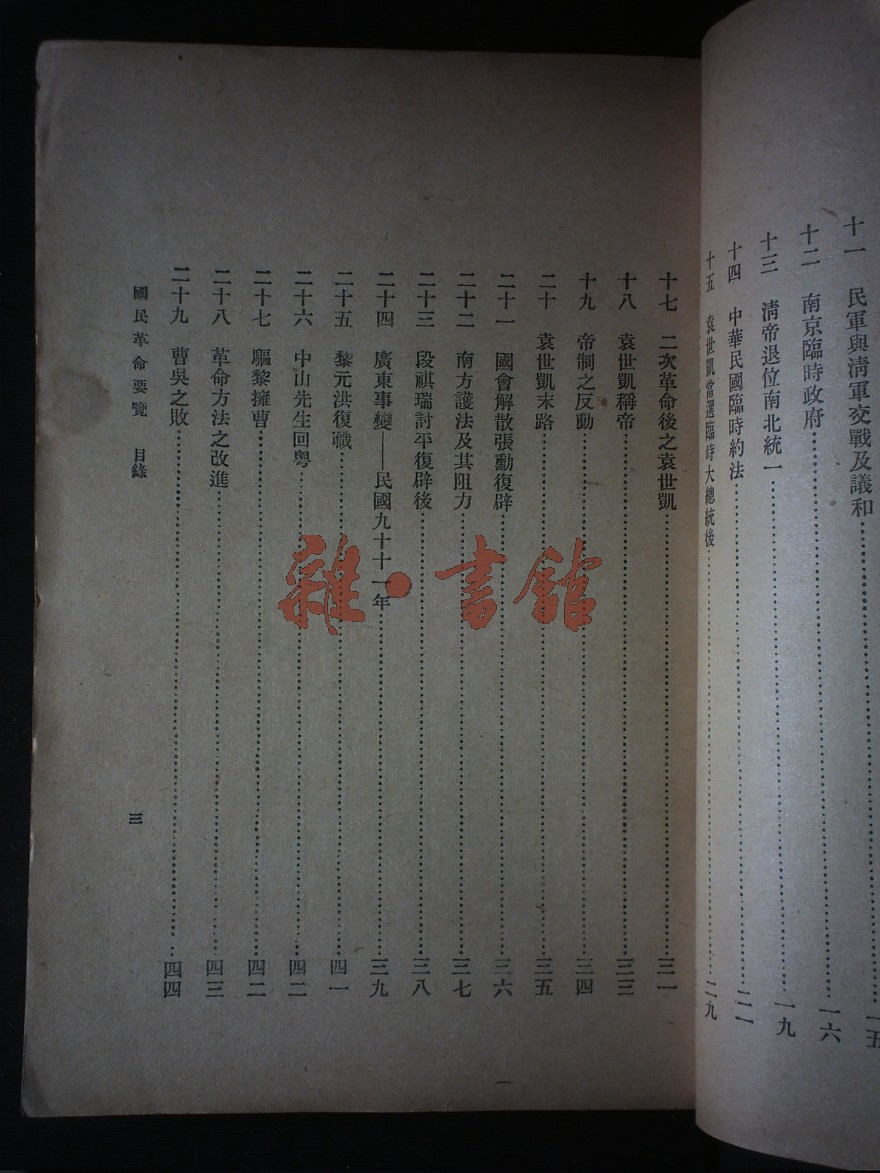 十一　民軍與清軍交戰及議和……一五
十二　南京臨時政府……一六
十三　清帝退位南北統一……一九
十四　中華民國臨時約法……二一
十五　袁世凱當選臨時大總統後……二九
十七　二次革命後之袁世凱……三一
十八　袁世凱稱帝……三三
十九　帝制之反動……三四
二十　袁世凱末路……三五
二十一　國會解散張勳復辟……三六
二十二　南方護法及其阻力……三七
二十三　段祺瑞討平復辟後……三八
二十四　廣東事變——民國九十十一年……三九
二十五　黎元洪復職……四一
二十六　中山先生回粵……四二
二十七　驅黎擁曹……四二
二十八　革命方法之改進……四三
二十九　曹吳之敗……四四
國民革命要覽　目錄
三
雜·書館